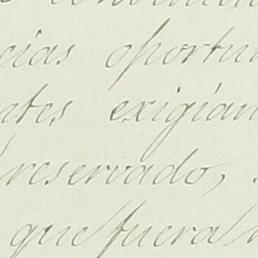 cias oportun
ntes exigian
reservado,
que fuera